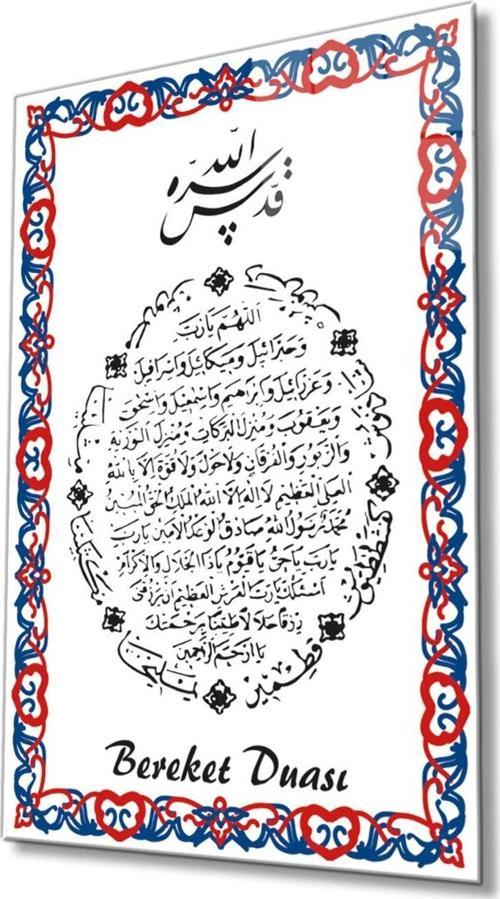 قدّس الله سرّه
اللهم يا رب
وجبرائيل وميكائيل واسرافيل
وعزرائيل وابراهيم واسمعيل واسحق
ويعقوب ومنزل البركات ومنزل التورية
والزبور والفرقان ولا حول ولا قوة الا بالله
العلى العظيم لا اله الا الله الملك الحق المبين
محمد رسول الله صادق الوعد الامين يا رب
يا رب يا حى يا قيوم يا ذا الجلال والاكرام
اسئلك يا رب العرش العظيم ان ترزقنى
رزقا حلالا طيبا برحمتك
يا ارحم الراحمين
يمليخا
قطمير
Bereket Duası